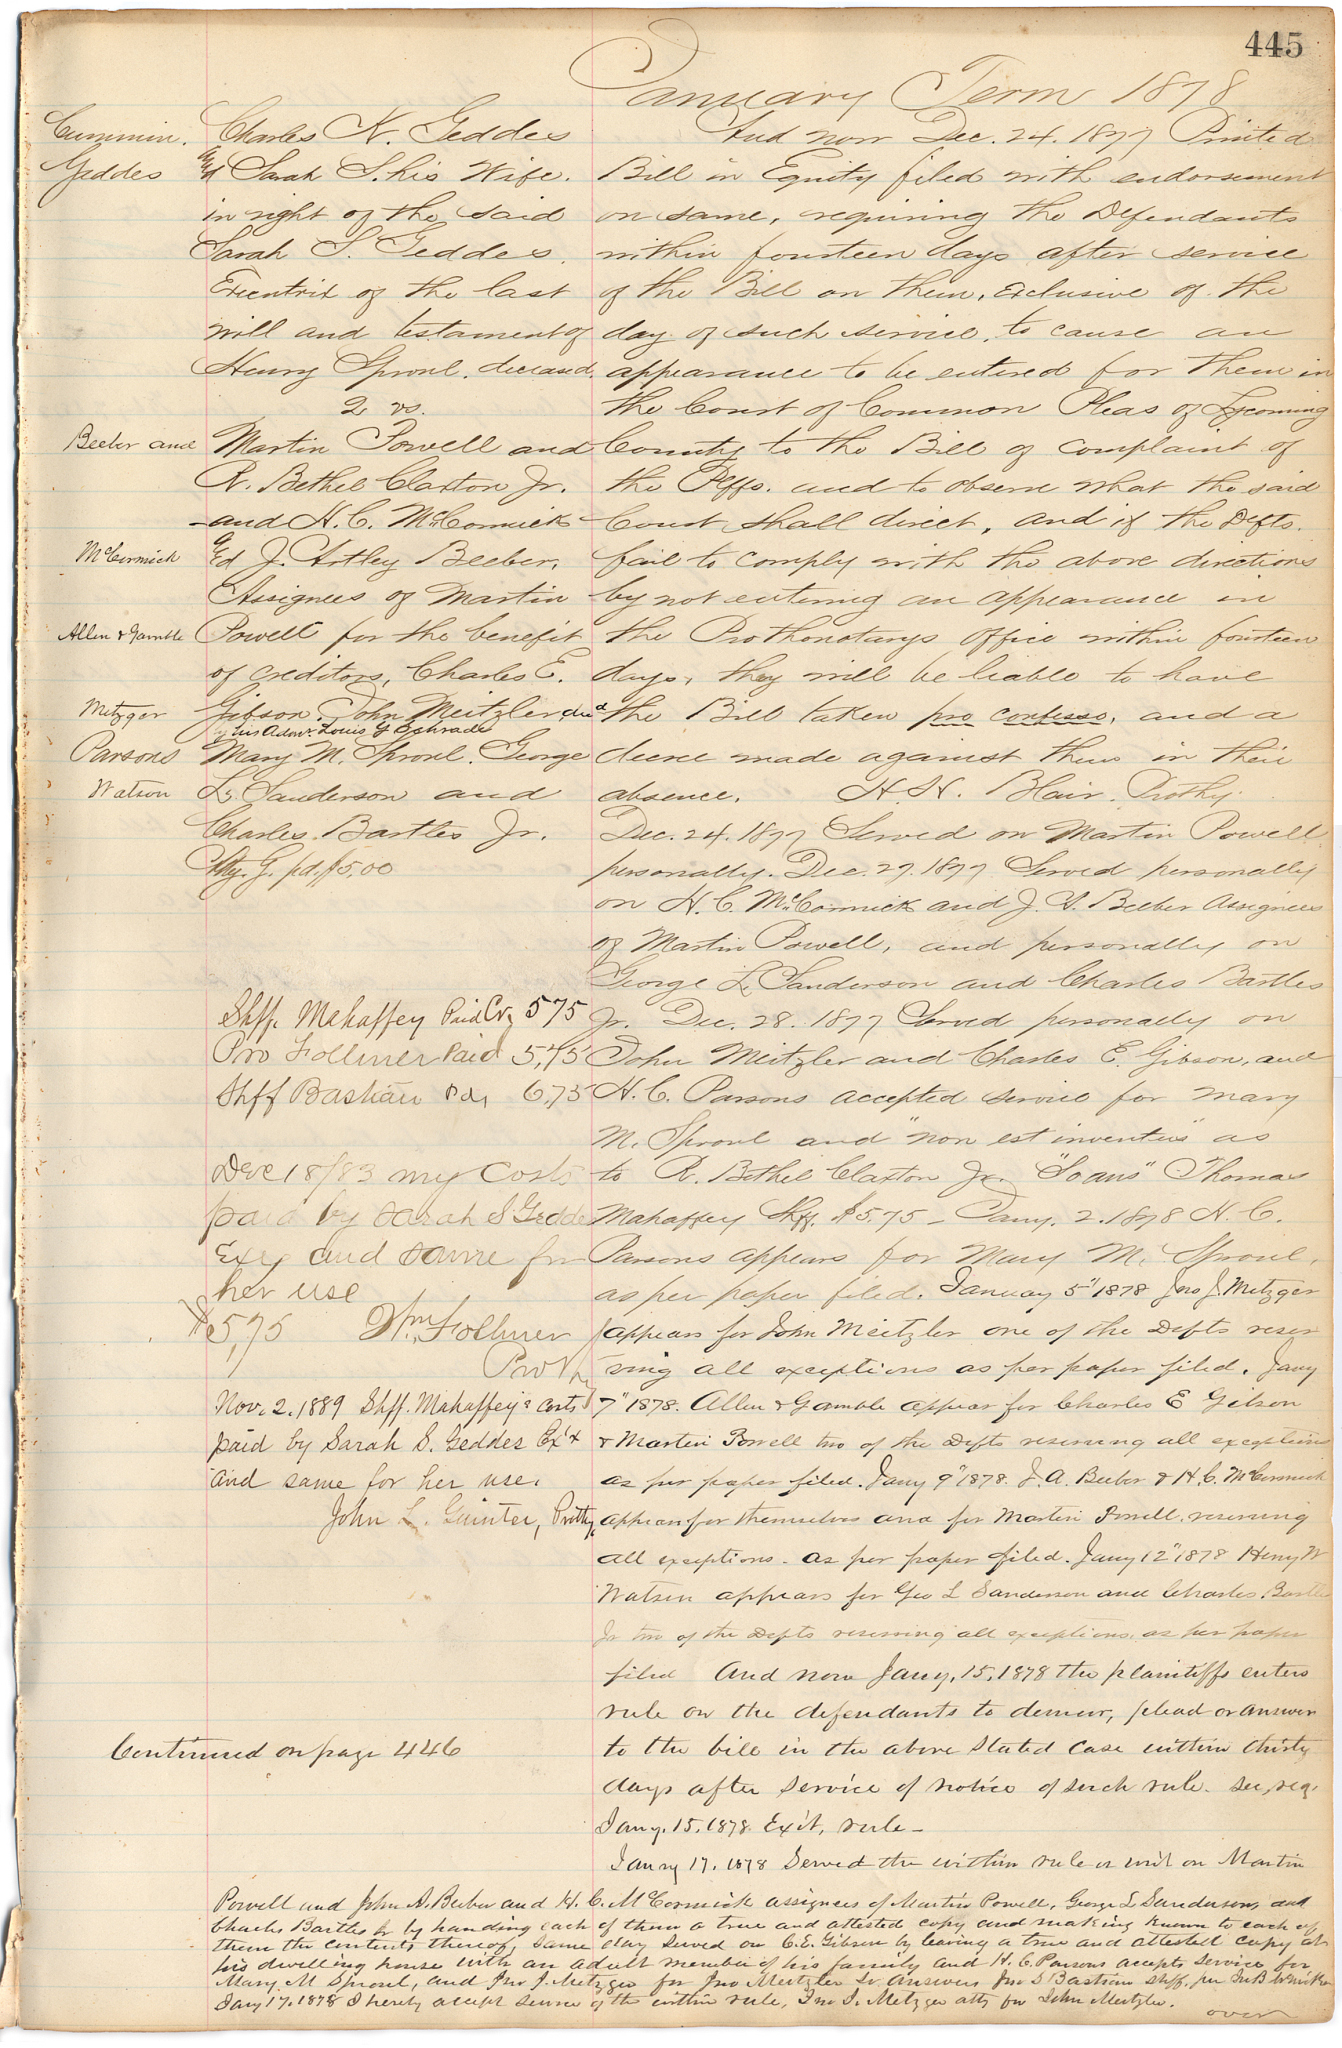 445
January Term 1878
Cummin.
Geddes
Beeber and
McCormick
Allen & Gamble
Metzger
Parsons
Watson
Charles N. Geddes
and Sarah S. his Wife.
in right of the said
Sarah S. Geddes.
Executrix of the last
will and testament of
Henry Sproul. deceased.
2 vs.
Martin Powell and
R. Bethel Claxton Jr.
and H. C. McCormick
and J. Artley Beeber,
Assignees of Martin
Powell for the benefit
of creditors, Charles E.
Gibson. John Meitzler dec'd
by his Admr. Louis G Schrade
Mary M. Sproul. George
L. Sanderson and
Charles Bartles Jr.
Atty. G. pd. $5.00
Shff. Mahaffey Paid 5 75
Pro Follmer Paid 5.75
Shff Bastian Pd, 6.75
Dec 18/83 my Costs
paid by Sarah S Geddes
Exex and same for
her use
$5.75 Wm Follmer
Proth
Nov. 2. 1889 Shff. Mahaffey's costs
paid by Sarah S. Geddes Ex'x
and same for her use.
John L. Guinter, Prothy.
Continued on page 446
And now Dec. 24. 1877 Printed
Bill in Equity filed with endorsement
on same, requiring the Defendants
within fourteen days after service
of the Bill on them, exclusive of the
day of such service, to cause an
appearance to be entered for them in
the Court of Common Pleas of Lycoming
County to the Bill of complaint of
the Plffs. and to observe what the said
Court shall direct, and if the Defts.
fail to comply with the above directions
by not entering an appearance in
the Prothonotarys Office within fourteen
days, they will be liable to have
the Bill taken pro confesso, and a
decree made against them in their
absence. H. H. Blair. Prothy.
Dec. 24. 1877 Served on Martin Powell
personally. Dec. 27. 1877 Served personally
on H. C. McCormick and J. A. Beeber Assignees
of Martin Powell, and personally on
George L. Sanderson and Charles Bartles
Jr. Dec. 28. 1877 Served personally on
John Meitzler and Charles E. Gibson, and
H. C. Parsons accepted service for Mary
M. Sproul and "non est inventus" as
to R. Bethel Claxton Jr. "So ans" Thomas
Mahaffey Shff. $5.75 - Jany. 2. 1878 H. C.
Parsons appears for Mary M. Sproul,
as per paper filed. January 5" 1878 Jno J. Metzger
appears for John Meitzler one of the Defts reser
ving all exceptions as per paper filed. Jany
7" 1878. Allen & Gamble appear for Charles E Gibson
& Martin Powell two of the Defts reserving all exceptions
as per paper filed. Jany 9" 1878. J. A. Beeber & H. C. McCormick
appear for themselves and for Martin Powell, reserving
all exceptions - as per paper filed. Jany 12" 1878 Henry W
Watson appears for Geo L Sanderson and Charles Bartles
Jr two of the Defts reserving all exceptions, as per paper
filed And now Jany, 15, 1878 the plaintiffs enters
rule on the defendants to demur, plead or answer
to the bill in the above stated case within thirty
days after service of notice of such rule. sec, reg.
Jany. 15, 1878 Exit, rule -
Jany 17, 1878 Served the within rule or writ on Martin
Powell and John A. Beeber and H. C. McCormick assignees of Martin Powell, George L Sanderson, and
Charles Bartles Jr by handing each of them a true and attested copy and making known to each of
them the contents thereof, same day served on C. E. Gibson by leaving a true and attested copy at
his dwelling house with an adult member of his family and H. C. Parsons accepts service for
Mary M Sproul, and Jno J. Metzger for Jno Meitzler So Answers Jno S Bastian Shff. per
Jany 17, 1878 I hereby accept service of the within rule, Jno J. Metzger atty for John Meitzler.
over